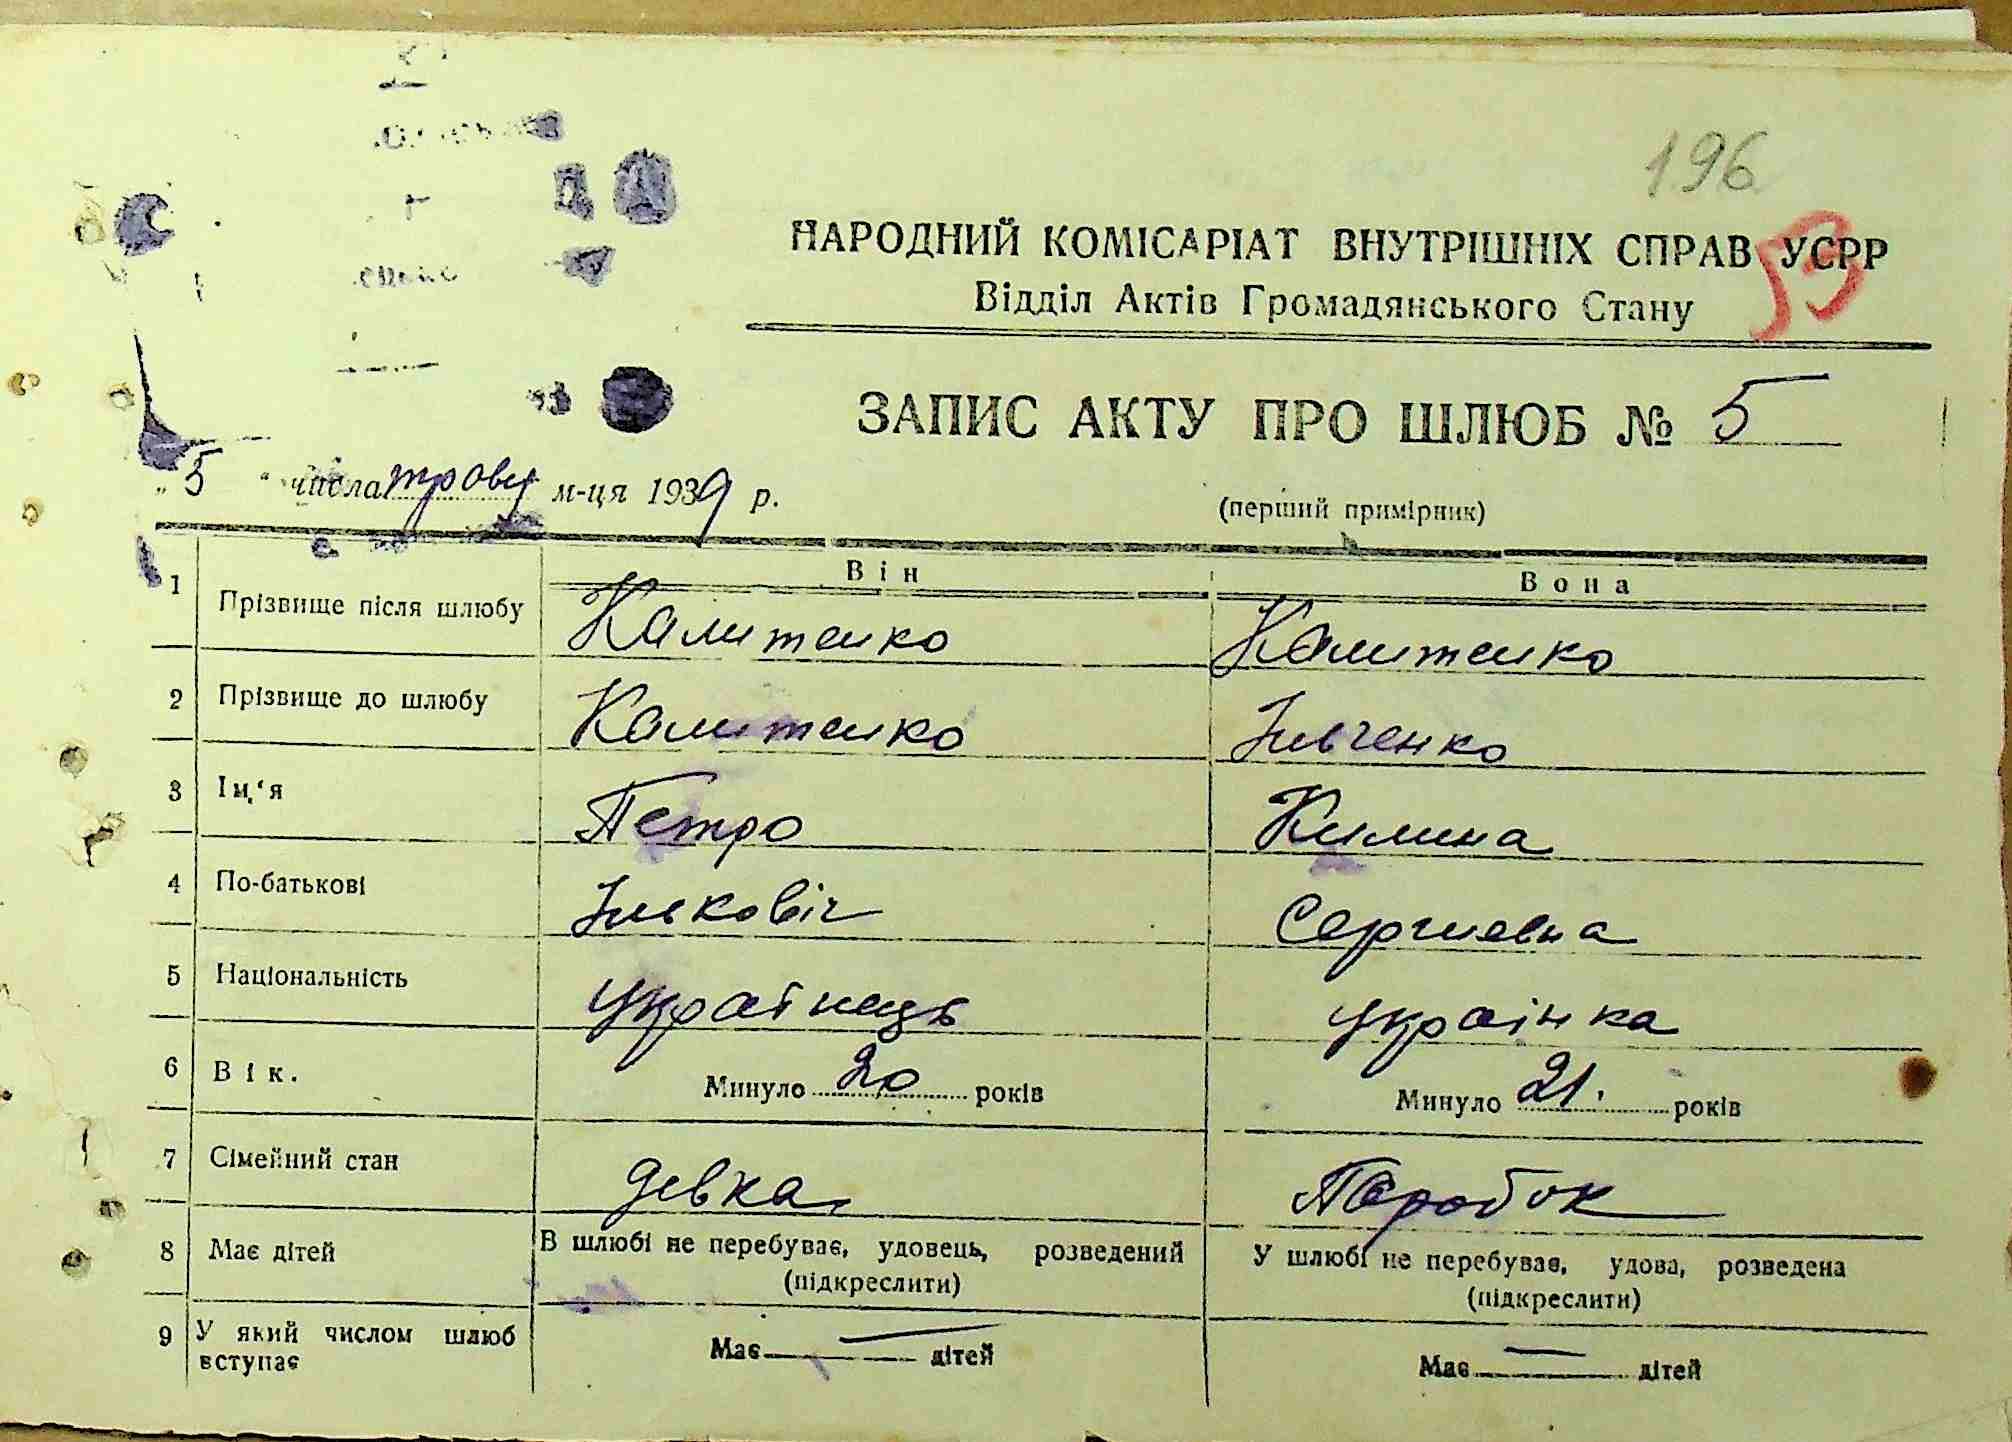 196
53
НАРОДНИЙ КОМІСАРІАТ ВНУТРІШНІХ СПРАВ УСРР
Відділ Актів Громадянського Стану
ЗАПИС АКТУ ПРО ШЛЮБ № 5
„ 5 “ числа траву м-ця 1939 р.
(перший примірник)
Він Вона
1 Прізвище після шлюбу Калитенко Калитенко
2 Прізвище до шлюбу Калитенко Ільченко
3 Ім‘я Петро Килина
4 По-батькові Ільковіч Сергиевна
5 Національність українець українка
6 Вік. Минуло 20 років Минуло 21. років
7 Сімейний стан девка Паробок
8 Має дітей В шлюбі не перебуває, удовець, розведений У шлюбі не перебуває, удова, розведена
(підкреслити) (підкреслити)
9 У який числом шлюб Має — дітей Має — дітей
вступає